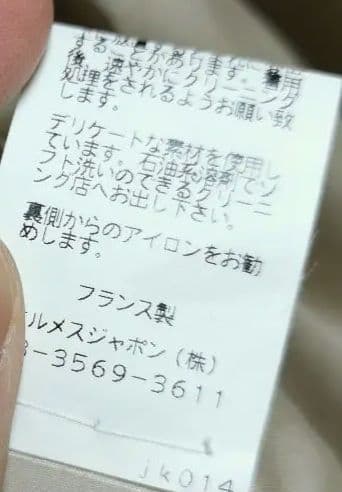 する
後、速やかにクリーニング
処理をされるようお願い致
します。
デリケートな素材を使用し
ています。石油系溶剤でソ
フト洗いのできるクリーニ
ング店へお出し下さい。
裏側からのアイロンをお勧
めします。
フランス製
ルメスジャポン(株)
3-3569-3611
jk014